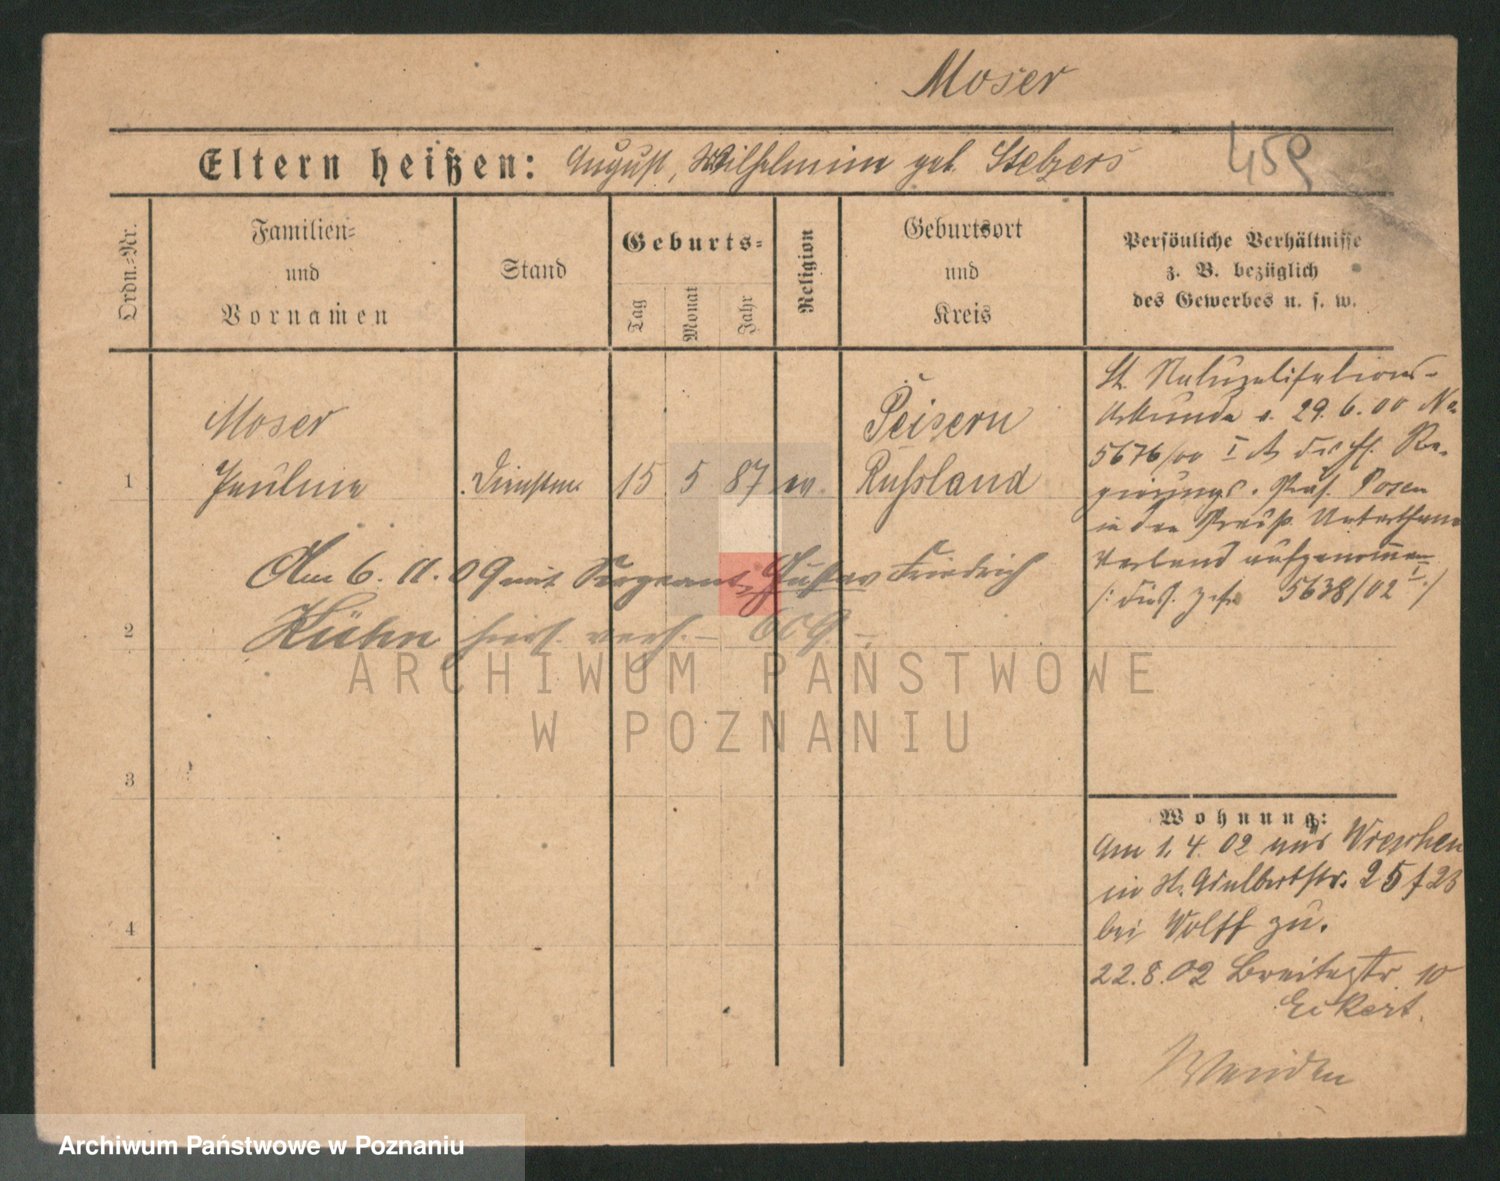 Moser
Eltern heißen: August, Wilhelmine geb. Stelzer
459
Ordn.-Nr.
Familien-
und
Vornamen
Stand
Geburts-
Tag
Monat
Jahr
Religion
Geburtsort
und
Kreis
Persönliche Verhältnisse
z. B. bezüglich
des Gewerbes u. s. w.
Moser
1 Pauline Dienstm. 15 5 87 ev.
Peisern
Russland
Lt. Naturalisations-
Urkunde v. 29.6.00 No
5676/00 I A durch H. Re-
gierungs-Präs. Posen
in den Preuß. Unterthanen
Verband aufgenommen
5638/02 I
Am 6.11.09 mit Sergeant Gustav Friedrich
2 Kühn hiers. verh. – 609. –
ARCHIWUM PAŃSTWOWE
W POZNANIU
3
4
Wohnung:
Am 1.4.02 aus Wreschen
in St. Adalbertstr. 25/28
bei Wolff zu.
22.8.02 Breitestr 10
Eckert.
Archiwum Państwowe w Poznaniu